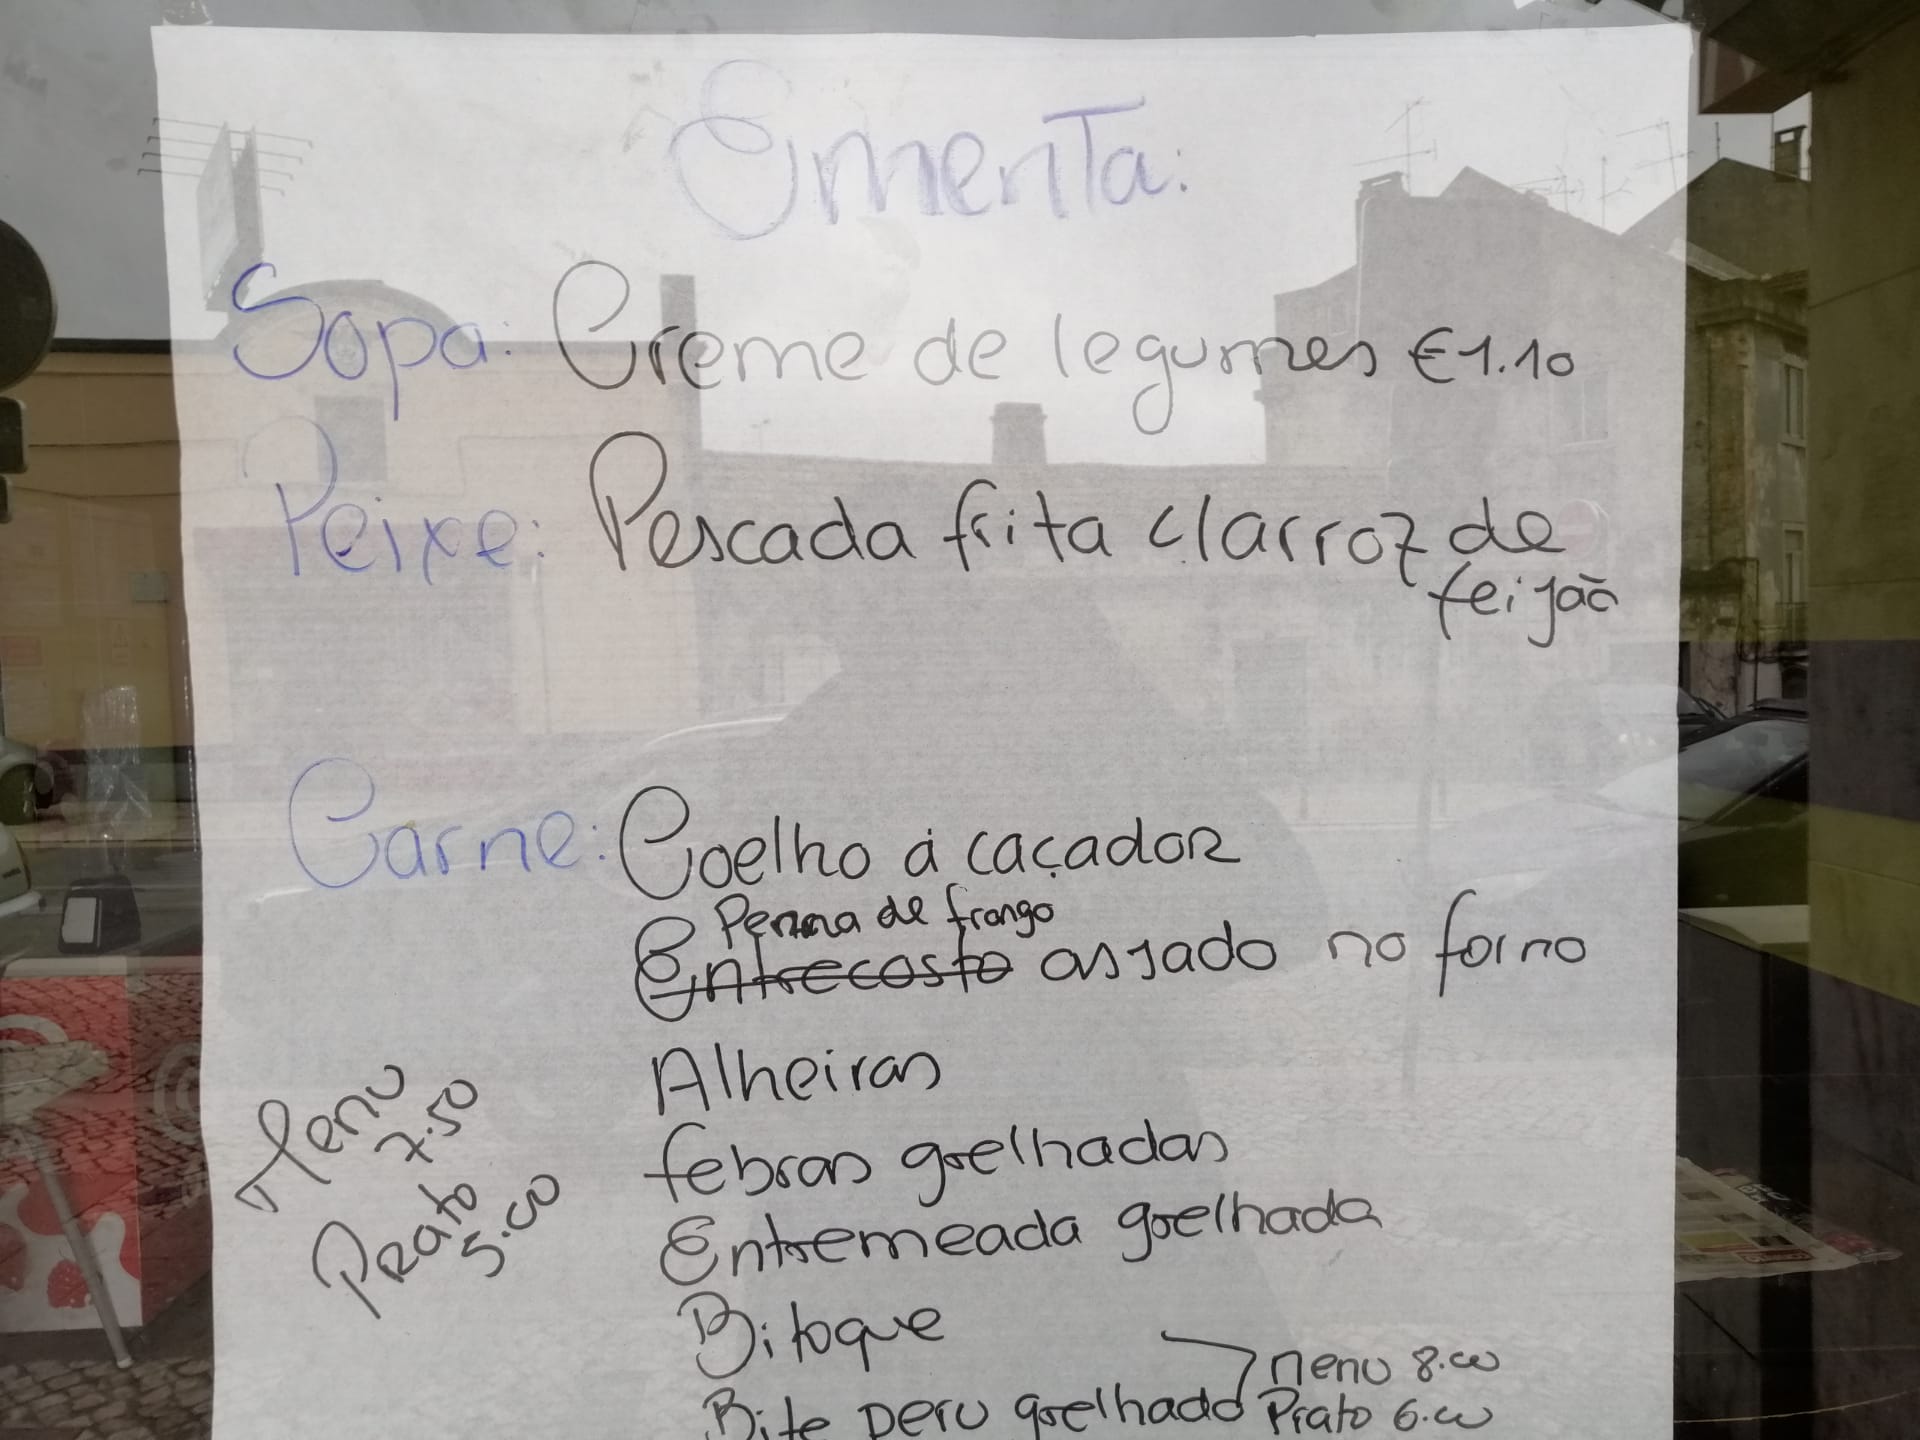 Ementa:
Sopa: Creme de legumes €1.10
Peixe: Pescada frita c/arroz de
feijão
Carne: Coelho á caçador
Perna de frango
Entrecosto assado no forno
Alheiras
febras grelhadas
Entremeada grelhada
Bitoque
Bife peru grelhado
Menu
7.50
Prato
5.00
Menu 8.00
Prato 6.00